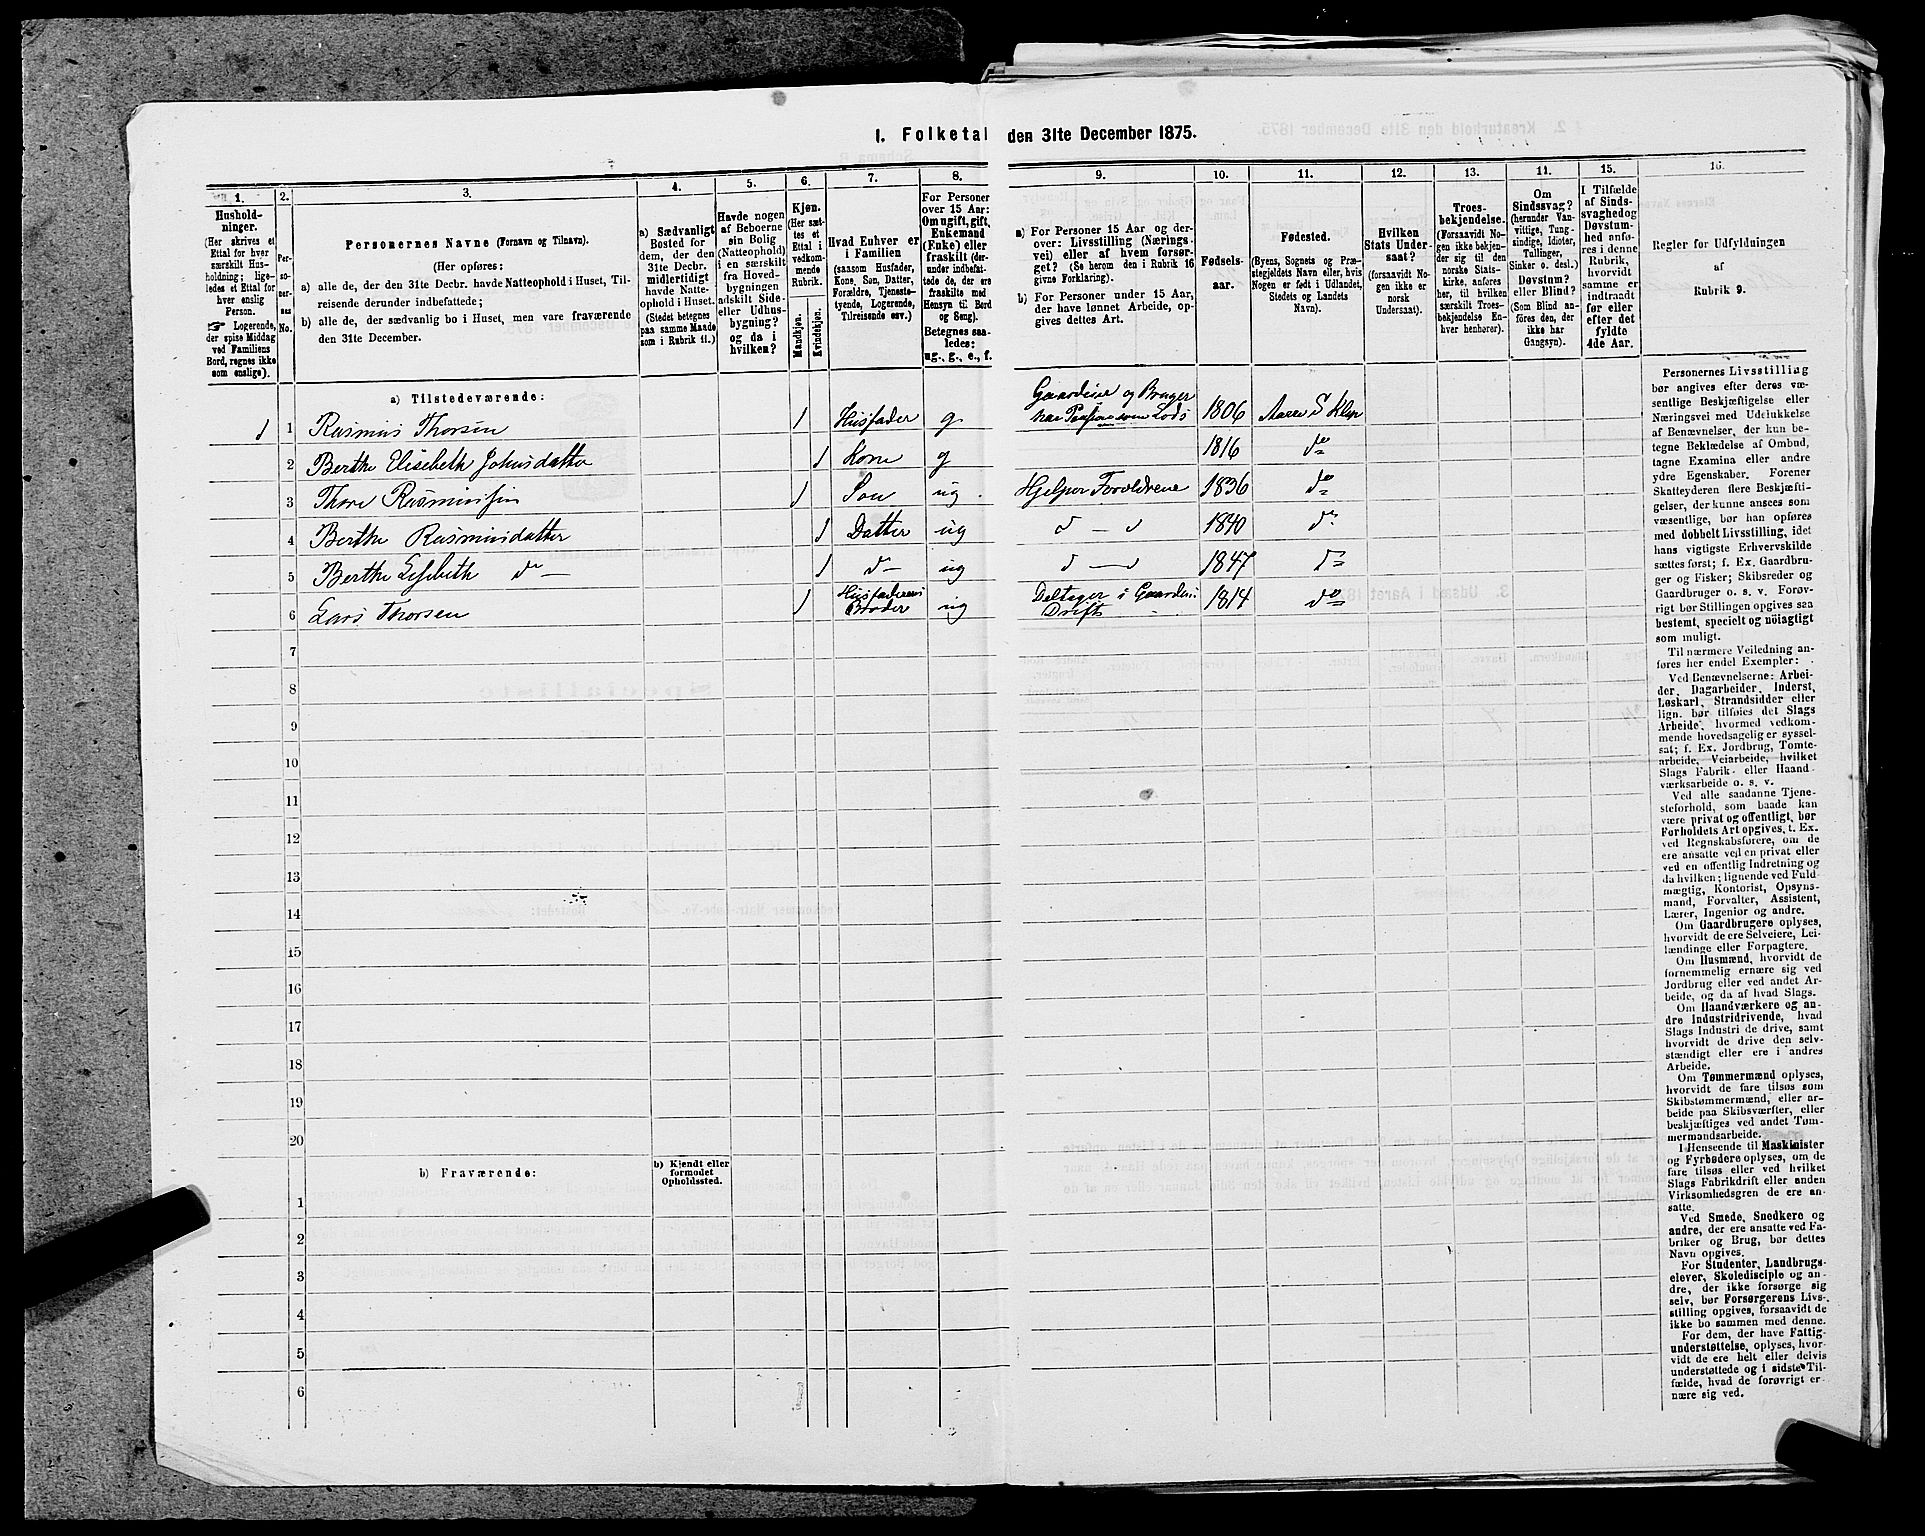 1. Folketal den 31te December 1875.
1. 2. 3. 4. 5. 6. 7. 8. 9. 10. 11. 12. 13. 14. 15. 16.
Hushold-
ninger.
(Her skrives et
Ettal for hver
særskilt Hus-
holdning; lige-
ledes et Ettal for
hver enslig
Person.
☞ Logerende,
der spise Middag
ved Familiens
Bord, regnes ikke
som enslige).
Per-
so-
ner-
nes
No.
Personernes Navne (Fornavn og Tilnavn).
(Her opføres:
a) alle de, der den 31te Decbr. havde Natteophold i Huset, Til-
reisende derunder indbefattede;
b) alle de, der sædvanlig bo i Huset, men vare fraværende
den 31te December.
a) Sædvanligt
Bosted for
dem, der den
31te Decbr.
midlertidigt
havde Natte-
ophold i Huset.
(Stedet betegnes
paa samme Maade
som i Rubrik 11.)
Havde nogen
af Beboerne
sin Bolig
(Natteophold)
i en særskilt
fra Hoved-
bygningen
adskilt Side-
eller Udhus-
bygning?
og da i
hvilken?
Kjøn.
(Her sæt-
tes et
Ettal i
vedkom-
mende
Rubrik.
Mandkjøn.
Kvindekjøn.
Hvad Enhver er
i Familien
(saasom Husfader,
Kone, Søn, Datter,
Forældre, Tjeneste-
tyende, Logerende,
Tilreisende osv.)
For Personer
over 15 Aar:
Om ugift, gift,
Enkemand
(Enke) eller
fraskilt (der-
under indbefat-
tede de, der ere
fraskilte med
Hensyn til Bord
og Seng).
Betegnes saa-
ledes:
ug., g., e., f.
a) For Personer 15 Aar og der-
over: Livsstilling (Nærings-
vei) eller af hvem forsør-
get? (Se herom den i Rubrik 16
givne Forklaring).
b) For Personer under 15 Aar,
der have lønnet Arbeide, op-
gives dettes Art.
Fødsels-
aar.
Fødested.
(Byens, Sognets og Præ-
stegjeldets Navn eller, hvis
Nogen er født i Udlandet,
Stedets og Landets
Navn).
Hvilken
Stats Under-
saat?
(forsaavidt No-
gen ikke er
norsk
Undersaat).
Troes-
bekjendelse.
(Forsaavidt No-
gen ikke bekjen-
der sig til den
norske Stats-
kirke, anføres
her, til hvilken
særskilt Troes-
bekjendelse En-
hver henhører).
Om
Sindssvag?
(herunder Van-
vittige, Tung-
sindige, Idioter,
Tullinger,
Sinker o. desl.)
Døvstum?
eller Blind?
(Som Blind an-
føres den, der
ikke har
Gangsyn).
I Tilfælde
af Sinds-
svaghed og
Døvstum-
hed anfø-
res i denne
Rubrik,
hvorvidt
samme er
indtraadt
før eller
efter det
fyldte
4de Aar.
Regler for Udfyldningen
af
Rubrik 9.
a) Tilstedeværende:
1 1 Rasmus Thorsen 1 Husfader g. Gaardeier og Bruger har Pension som Lods 1806 S Klep
2 Berthe Elisebeth Johnsdatter 1 Kone g 1816 do
3 Thore Rasmussen 1 Søn ug. Hjelper Forældrene 1836 do
4 Berthe Rasmusdatter 1 Datter ug d — d 1840 do
5 Berthe Lisebeth do — 1 d — ug d — d 1847 do
6 Lars Thorsen 1 Husfaderens Broder ug Deltager i Gaardens Drift 1814 do
7
8
9
10
11
12
13
14
15
16
17
18
19
20
b) Fraværende:
b) Kjendt eller
formodet
Opholdssted.
1
2
3
4
5
6
Personernes Livsstilling
bør angives efter deres væ-
sentlige Beskjæftigelse eller
Næringsvei med Udelukkelse
af Benævnelser, der kun be-
tegne Beklædelse af Ombud,
tagne Examina eller andre
ydre Egenskaber. Forener
Skatteyderen flere Beskjæfti-
gelser, der kunne ansees som
væsentlige, bør han opføres
med dobbelt Livsstilling, idet
hans vigtigste Erhvervskilde
sættes først; f. Ex. Gaardbru-
ger og Fisker; Skibsreder og
Gaardbruger o. s. v. Forøv-
rigt bør Stillingen opgives saa
bestemt, specielt og nöiagtigt
som muligt.
Til nærmere Veiledning an-
føres her endel Exempler:
Ved Benævnelserne: Arbei-
der, Dagarbeider, Inderst,
Løskarl, Strandsidder eller
lign. bør tilføies det Slags
Arbeide, hvormed vedkom-
mende hovedsagelig er syssel-
sat; f. Ex. Jordbrug, Tomte-
arbeide, Veiarbeide, hvilket
Slags Fabrik- eller Haand-
værksarbeide o. s. v.
Ved alle saadanne Tjene-
steforhold, som baade kan
være privat og offentligt, bør
Forholdets Art opgives, t. Ex.
ved Regnskabsførere, om de
ere ansatte ved en privat eller
ved en offentlig Indretning og
da hvilken; lignende ved Fuld-
mægtig, Kontorist, Opsyns-
mand, Forvalter, Assistent,
Lærer, Ingeniør og andre.
Om Gaardbrugere oplyses,
hvorvidt de ere Selveiere, Lei-
lændinge eller Forpagtere.
Om Husmænd, hvorvidt de
fornemmelig ernære sig ved
Jordbrug eller ved andet Ar-
beide, og da af hvad Slags.
Om Haandværkere og an-
dre Industridrivende, hvad
Slags Industri de drive, samt
hvorvidt de drive den selv-
stændigt eller ere i andres
Arbeide.
Om Tømmermænd oplyses,
hvorvidt de fare tilsøs som
Skibstømmermænd, eller ar-
beide paa Skibsværfter, eller
beskjæftiges ved andet Tøm-
mermandsarbeide.
I Henseende til Maskinister
og Fyrbødere oplyses, om de
fare tilsøs eller ved hvilket
Slags Fabrikdrift eller anden
Virksomhedsgren de ere an-
satte.
Ved Smede, Snedkere og
andre, der ere ansatte ved Fa-
briker og Brug, bør dettes
Navn opgives.
For Studenter, Landbrugs-
elever, Skoledisciple og an-
dre, der ikke forsørge sig
selv, bør Forsørgerens Livs-
stilling opgives, forsaavidt de
ikke bo sammen med denne.
For dem, der have Fattig-
understøttelse, oplyses, hvor-
vidt de ere helt eller delvis
understøttede og i sidste Til-
fælde, hvad de forøvrigt er-
nære sig ved.